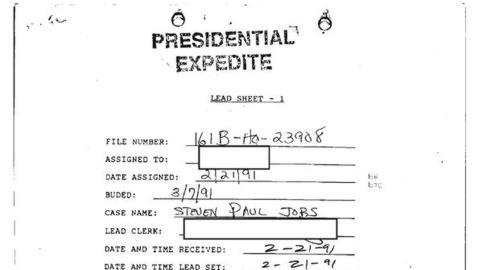 PRESIDENTIAL
EXPEDITE
LEAD SHEET - 1
FILE NUMBER: 161B-HQ-23908
ASSIGNED TO:
DATE ASSIGNED: 2/21/91
b6
b7C
BUDED: 3/7/91
CASE NAME: STEVEN PAUL JOBS
LEAD CLERK:
DATE AND TIME RECEIVED: 2-21-91
DATE AND TIME LEAD SET: 2-21-91